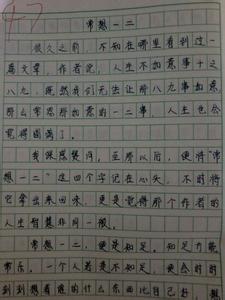 47
常想一二
很久之前，不知在哪里看到过一
篇文章，作者说，人生不如意事十之
八九，既然我们无法让那八九事如意
那么常想那如意的一二事，人生也会
觉得圆满了。
我深感赞同，至那以后，便将“常
想一二”这四个字记在心头，不时将
它拿出来回味，更是觉得那个作者的
人生智慧非同一般。
常想一二，便是知足，知足方能
常乐。一个人若是不知足，便会时时
刻刻想着谁的什么东西比自己好，